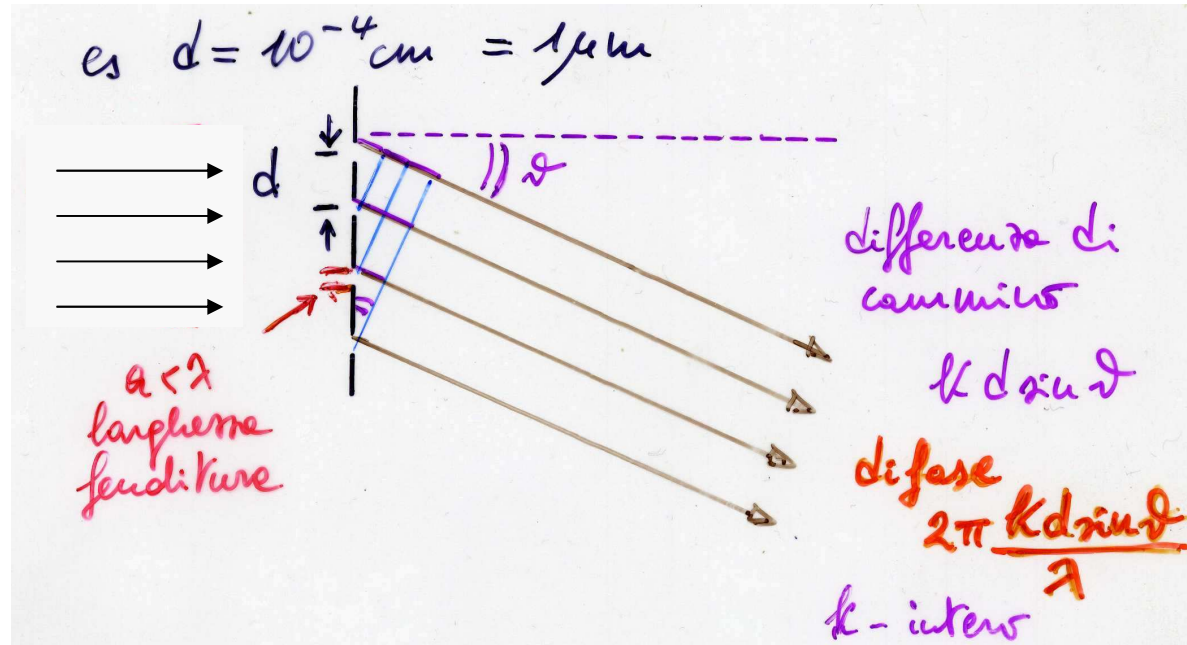 es d = 10⁻⁴ cm = 1 μm
d
ϑ
differenza di
cammino
k d sin ϑ
a < λ
larghezza
fenditura
di fase
2π k d sin ϑ / λ
k - intero